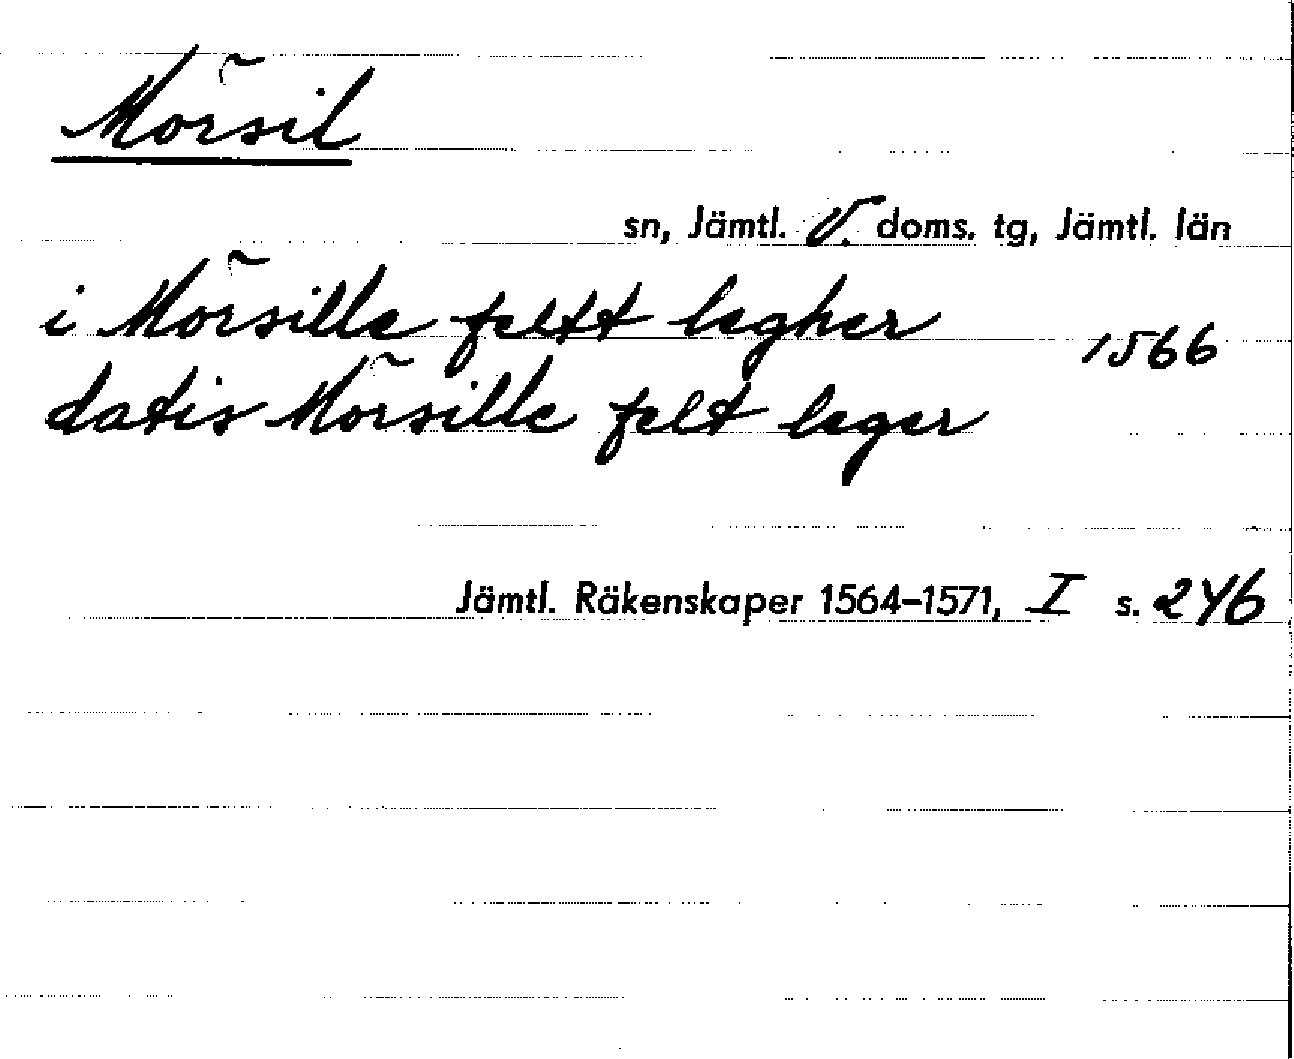 Mörsil
sn, Jämtl. V. doms. tg, Jämtl. län
i Mörsille feltt legher 1566
datis Mörsille felt leger
Jämtl. Räkenskaper 1564–1571, I s. 246